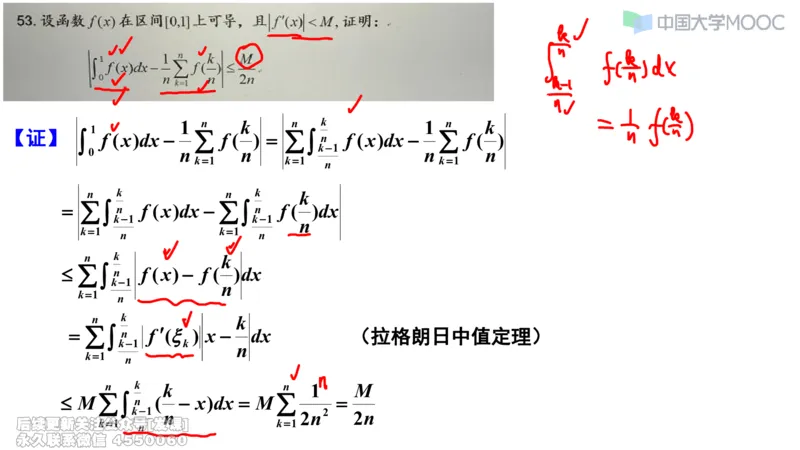 53. 设函数 f(x) 在区间[0,1]上可导，且|f′(x)|<M, 证明：
|∫₀¹ f(x)dx − 1/n ∑ₖ₌₁ⁿ f(k/n)| ≤ M/2n.
中国大学MOOC
∫_{(k-1)/n}^{k/n} f(k/n)dx
= 1/n f(k/n)
【证】 |∫₀¹ f(x)dx − 1/n ∑ₖ₌₁ⁿ f(k/n)| = |∑ₖ₌₁ⁿ ∫_{(k-1)/n}^{k/n} f(x)dx − 1/n ∑ₖ₌₁ⁿ f(k/n)|
= |∑ₖ₌₁ⁿ ∫_{(k-1)/n}^{k/n} f(x)dx − ∑ₖ₌₁ⁿ ∫_{(k-1)/n}^{k/n} f(k/n)dx|
≤ ∑ₖ₌₁ⁿ ∫_{(k-1)/n}^{k/n} |f(x) − f(k/n)|dx
= ∑ₖ₌₁ⁿ ∫_{(k-1)/n}^{k/n} |f′(ξₖ)||x − k/n|dx （拉格朗日中值定理）
≤ M ∑ₖ₌₁ⁿ ∫_{(k-1)/n}^{k/n} (k/n − x)dx = M ∑ₖ₌₁ⁿ 1/2n² = M/2n
n
永久联系微信 4550060